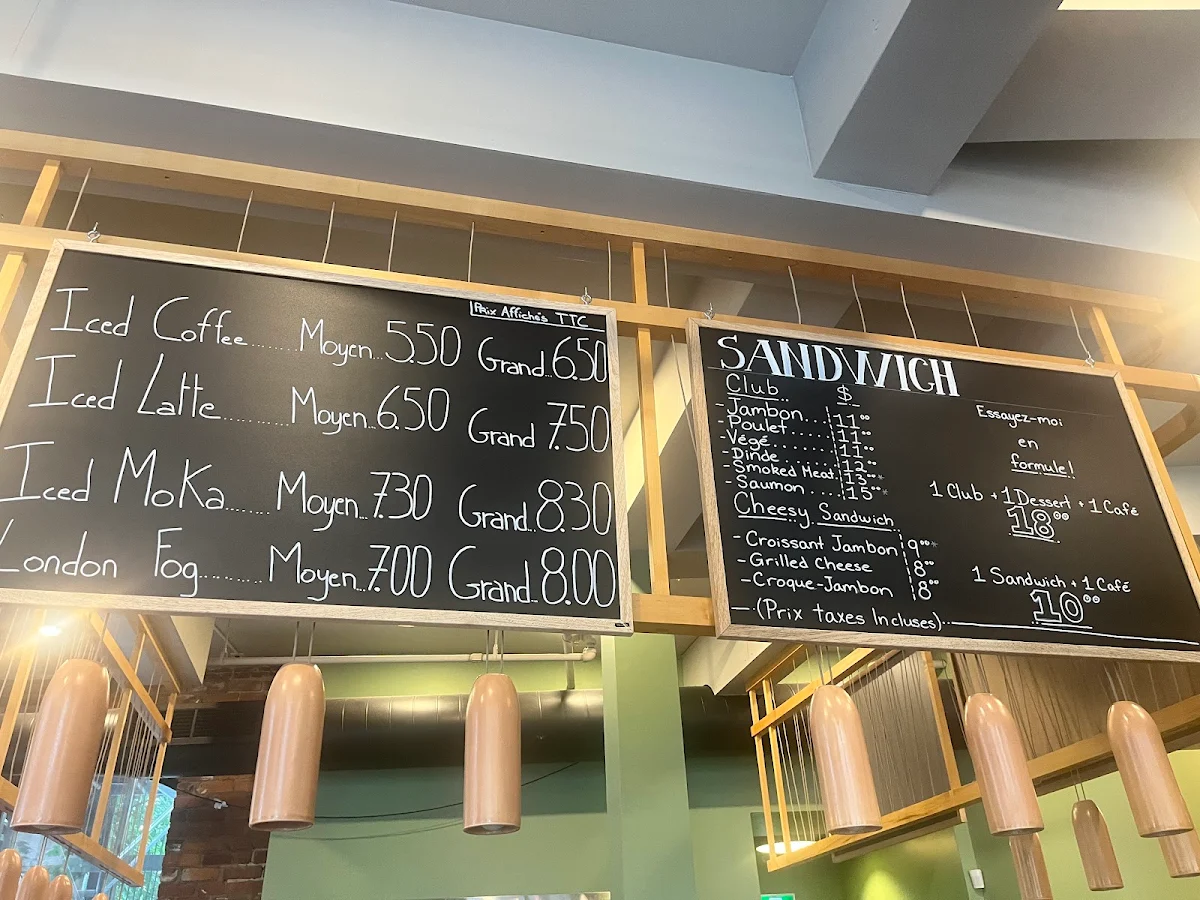 Prix Affichés TTC
Iced Coffee........ Moyen...5.50 Grand..6.50
Iced Latte........ Moyen..6.50 Grand 7.50
Iced Moka....... Moyen..7.30 Grand..8.30
London Fog.......... Moyen..7.00 Grand..8.00
SANDWICH
Club $
- Jambon... 11⁰⁰
- Poulet..... 11⁰⁰
- Végé...... 11⁰⁰
- Dinde..... 12⁰⁰
- Smoked Meat. 13⁰⁰*
- Saumon.... 15⁰⁰*
Cheesy Sandwich
- Croissant Jambon 9⁰⁰*
- Grilled Cheese 8⁰⁰
- Croque-Jambon 8⁰⁰
(Prix taxes Incluses)
Essayez-moi
en
formule!
1 Club + 1 Dessert + 1 Café
18⁰⁰
1 Sandwich + 1 Café
10⁰⁰